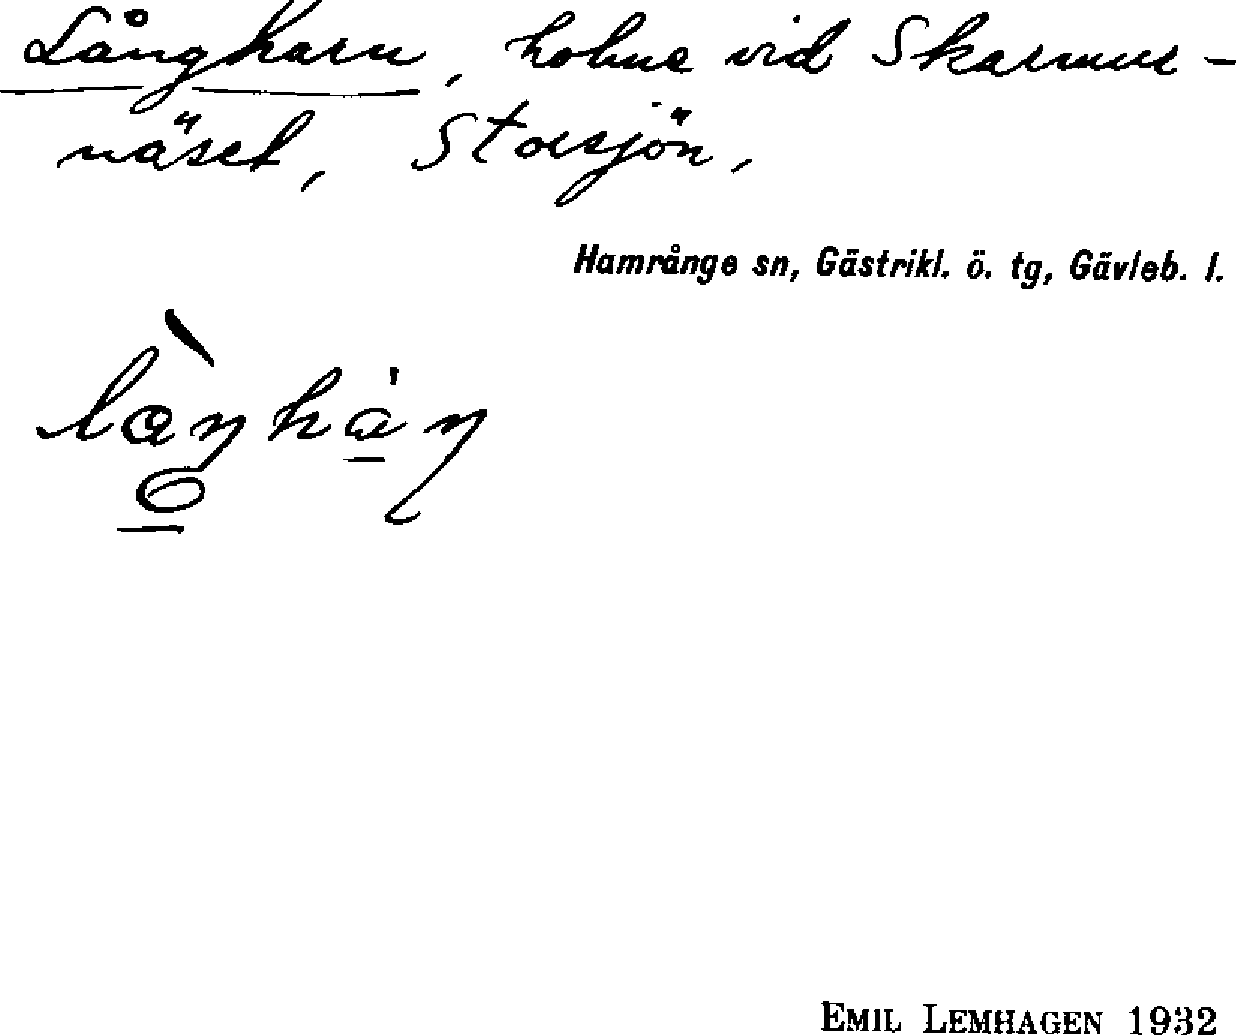 Långharn, holme vid Skarmur-
näset, Storsjön,
Hamrånge sn, Gästrikl. ö. tg, Gävleb. l.
EMIL LEMHAGEN 1932